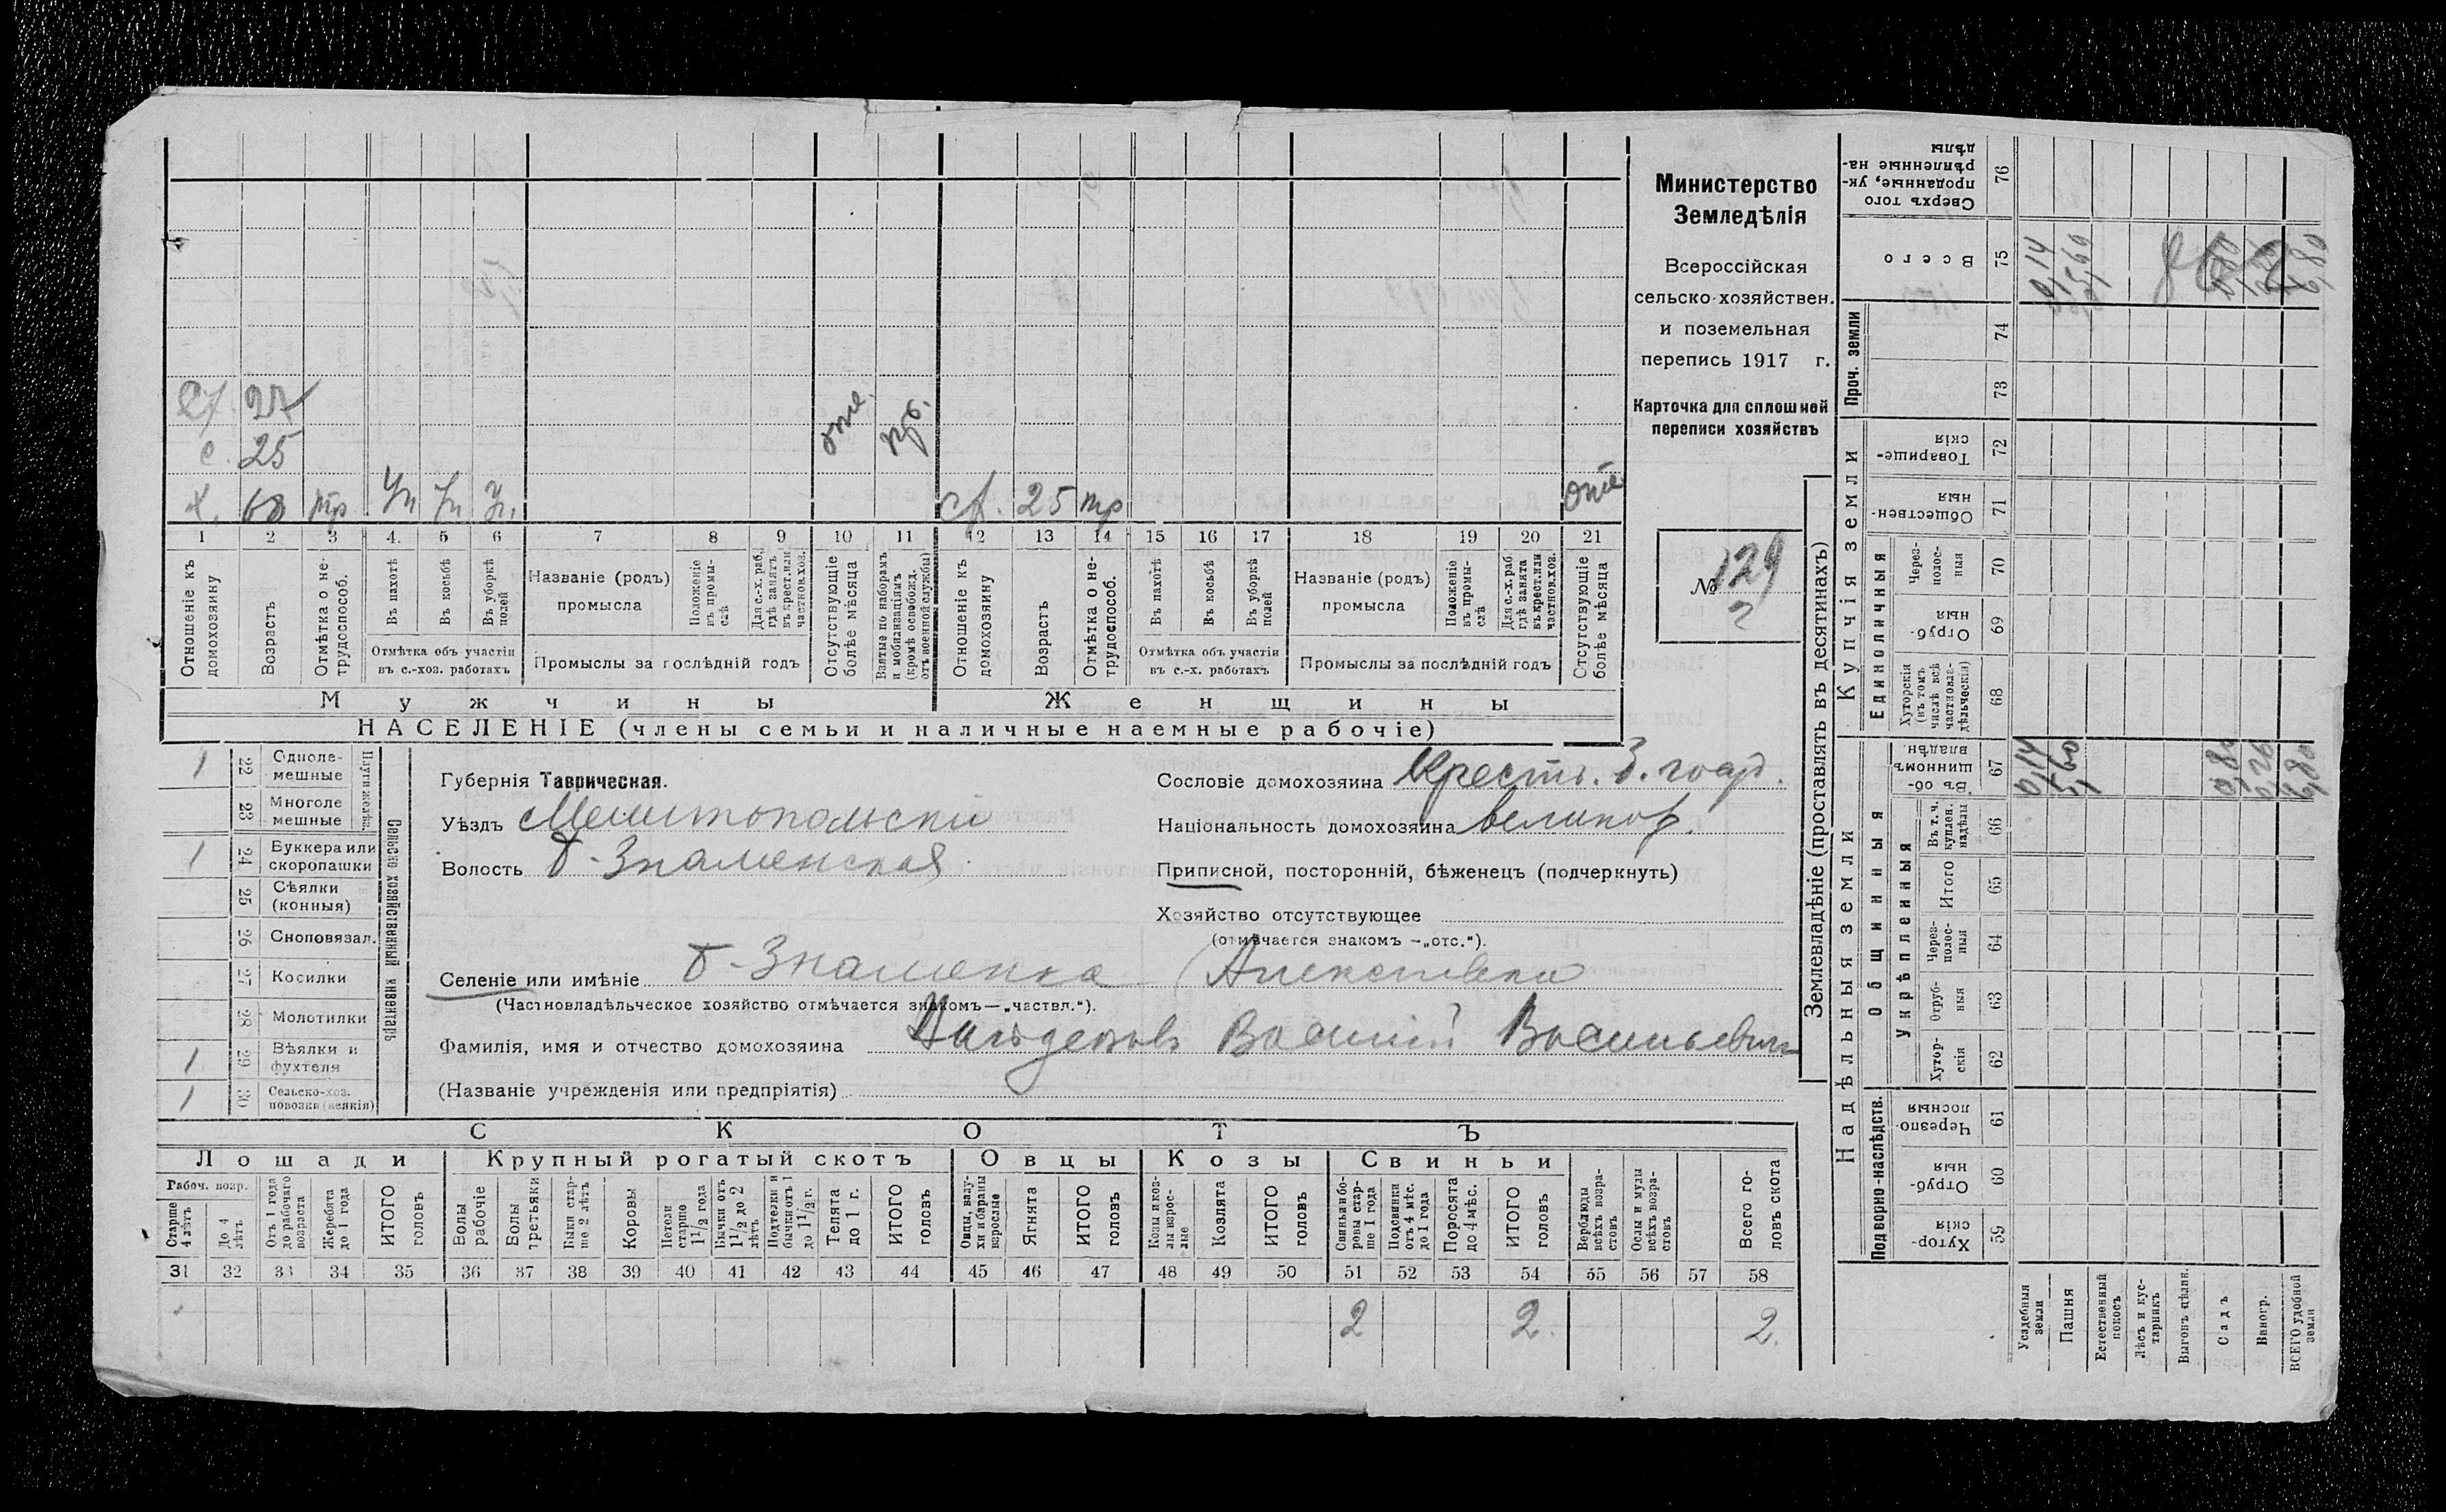 Министерство
Земледѣлія
Всероссійская
сельско-хозяйствен.
и поземельная
перепись 1917 г.
Карточка для сплошной
переписи хозяйствъ
№ 129
2
ст. 27
с. 25
х. 60 тр Уп Уп Уп. ст. 25 тр
отс.
отс.
1 2 3 4. 5 6 7 8 9 10 11 12 13 14 15 16 17 18 19 20 21
Отношеніе къ домохозяину
Возрастъ
Отмѣтка о нетрудоспособ.
Въ пахотѣ
Въ косьбѣ
Въ уборкѣ полей
Отмѣтка объ участіи
въ с.-хоз. работахъ
Названіе (родъ)
промысла
Положеніе въ промыслѣ
Для с.-х. раб. гдѣ занятъ въ крест. или частнов. хоз.
Промыслы за послѣдній годъ
Отсутствующіе болѣе мѣсяца
Взятые по наборамъ и мобилизаціямъ (кромѣ освобожд. отъ военной службы)
Отношеніе къ домохозяину
Возрастъ
Отмѣтка о нетрудоспособ.
Въ пахотѣ
Въ косьбѣ
Въ уборкѣ полей
Отмѣтка объ участіи
въ с.-х. работахъ
Названіе (родъ)
промысла
Положеніе въ промыслѣ
Для с.-х. раб. гдѣ занята въ крест. или частнов. хоз.
Промыслы за послѣдній годъ
Отсутствующіе болѣе мѣсяца
Мужчины Женщины
НАСЕЛЕНІЕ (члены семьи и наличные наемные рабочіе)
Сельско хозяйственный инвентарь
Плуги желѣз.
1 22 Однолемешные
23 Многолемешные
1 24 Буккера или скоропашки
25 Сѣялки (конныя)
26 Сноповязал.
27 Косилки
28 Молотилки
1 29 Вѣялки и фухтеля
1 30 Сельско-хоз. повозки (всякія)
Губернія Таврическая.
Уѣздъ Мелитопольскій
Волость Б-Знаменская
Сословіе домохозяина Крестъ.
Національность домохозяина великор.
Приписной, посторонній, бѣженецъ (подчеркнуть)
Хозяйство отсутствующее
(отмѣчается знакомъ —„отс.“).
Селеніе или имѣніе Б-Знаменка (Алексѣевка
(Частновладѣльческое хозяйство отмѣчается знакомъ—„частвл.“).
Фамилія, имя и отчество домохозяина Василій Васильевичъ
(Названіе учрежденія или предпріятія)
СКОТЪ
Лошади Крупный рогатый скотъ Овцы Козы Свиньи
Рабоч. возр.
Старше 4 лѣтъ
До 4 лѣтъ
Отъ 1 года до рабочаго возраста
Жеребята до 1 года
ИТОГО головъ
Волы рабочіе
Волы третьяки
Быки старше 2 лѣтъ
Коровы
Нетели старше 1 1/2 года
Бычки отъ 1 1/2 до 2 лѣтъ
Подтелки и бычки отъ 1 до 1 1/2 г.
Телята до 1 г.
ИТОГО головъ
Овцы, валухи и бараны взрослые
Ягнята
ИТОГО головъ
Козы и козлы взрослые
Козлята
ИТОГО головъ
Свиньи и боровы старше 1 года
Подсвинки отъ 4 мѣс. до 1 года
Поросята до 4 мѣс.
ИТОГО головъ
Верблюды всѣхъ возрастовъ
Ослы и мулы всѣхъ возрастовъ
Всего головъ скота
31 32 33 34 35 36 37 38 39 40 41 42 43 44 45 46 47 48 49 50 51 52 53 54 55 56 57 58
2 2. 2.
Землевладѣніе (проставлять въ десятинахъ)
Надѣльныя земли Купчія земли Проч. земли
Подворно-наслѣдств.
Общинныя
Укрѣпленныя
Единоличныя
Хуторскія 59
Отрубныя 60
Черезполосныя 61
Хуторскія 62
Отрубныя 63
Черезполосныя 64
Итого 65
Въ т. ч. куплен. надѣлы 66
Въ общинномъ владѣн. 67
Хуторскія (въ томъ числѣ всѣ частновладѣльческія) 68
Отрубныя 69
Черезполосныя 70
Общественныя 71
Товарищескія 72
73
74
Всего 75
Сверхъ того проданные, укрѣпленные надѣлы 76
Усадебныя земли 0,14 0,14
Пашня 5,60 5,60
Естественный покосъ
Лѣсъ и кустарникъ
Выгонъ цѣлин.
Садъ 0,80
Виногр. 0,26
ВСЕГО удобной земли 6,80 6,80